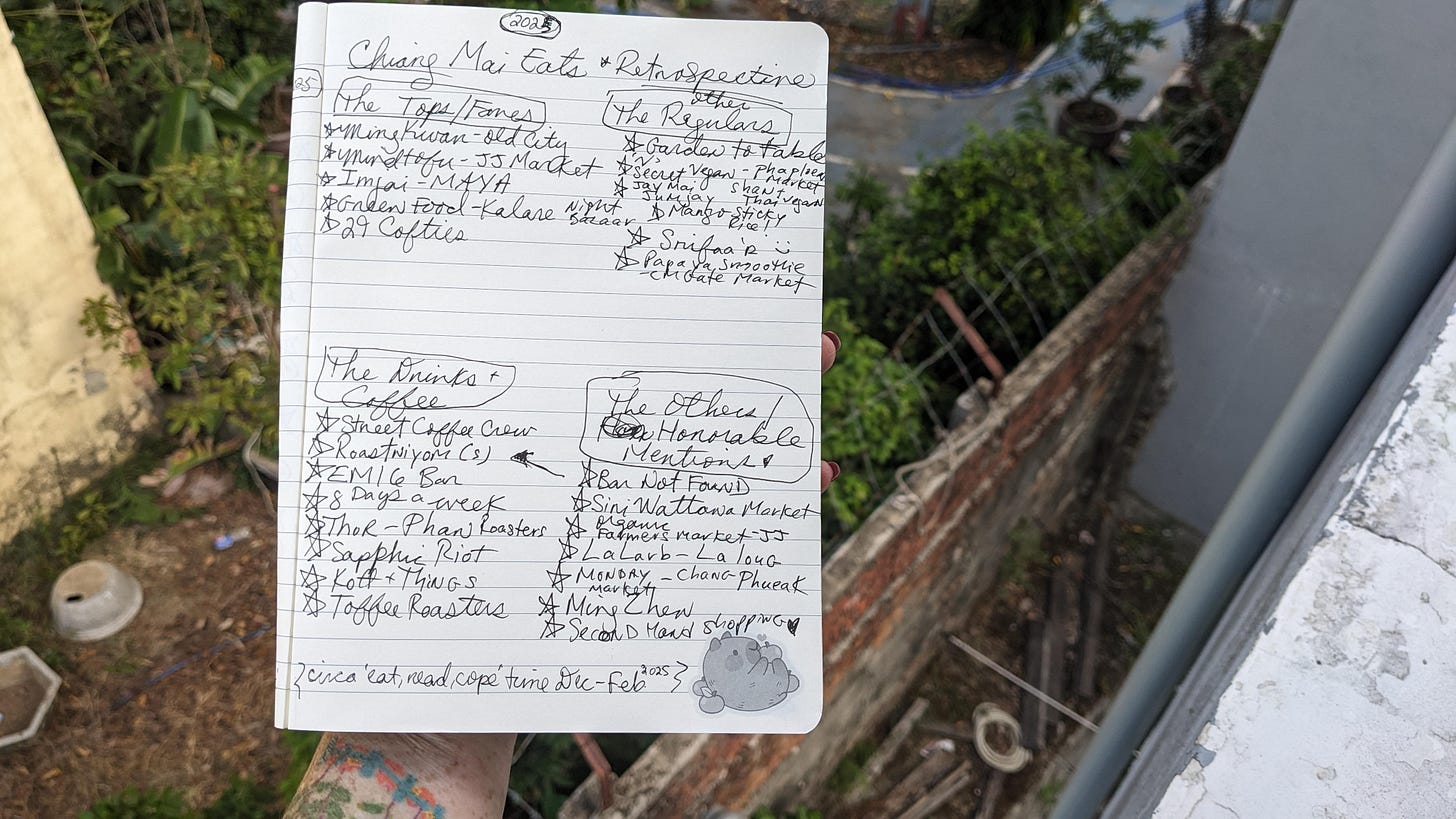 2025
Chiang Mai Eats * Retrospective
25
The Tops/Faves
* Ming Kwan - Old City
* Mindtofu - JJ Market
* Imjai - MAYA
* Green Food - Kalare Night Bazaar
* 29 Coffees
The other Regulars
* Garden to Table
* Secret Vegan - Phaploen Market
* Jay Mai Shanti
* Jumjay Thai vegan
* Mango Sticky Rice!
* Srifaa'R
* Papaya Smoothie
- CM Gate Market
The Drinks +
Coffee
* Street Coffee Crew
* Roastniyom (s)
* EM16 Bar
* 8 Days a week
* Thor - Phan Roasters
* Sapphic Riot
* Koff + Things
* Toffee Roasters
The Others/
Honorable
Mentions
* Bar Not Found
* Siri Wattana Market
* Organic
Farmers Market - JJ
* LaLarb - La loug
* Monday - Chang Phueak
market
* Ming Chen
* Second Hand shopping
{circa 'eat, read, cope' time Dec-Feb 2025}